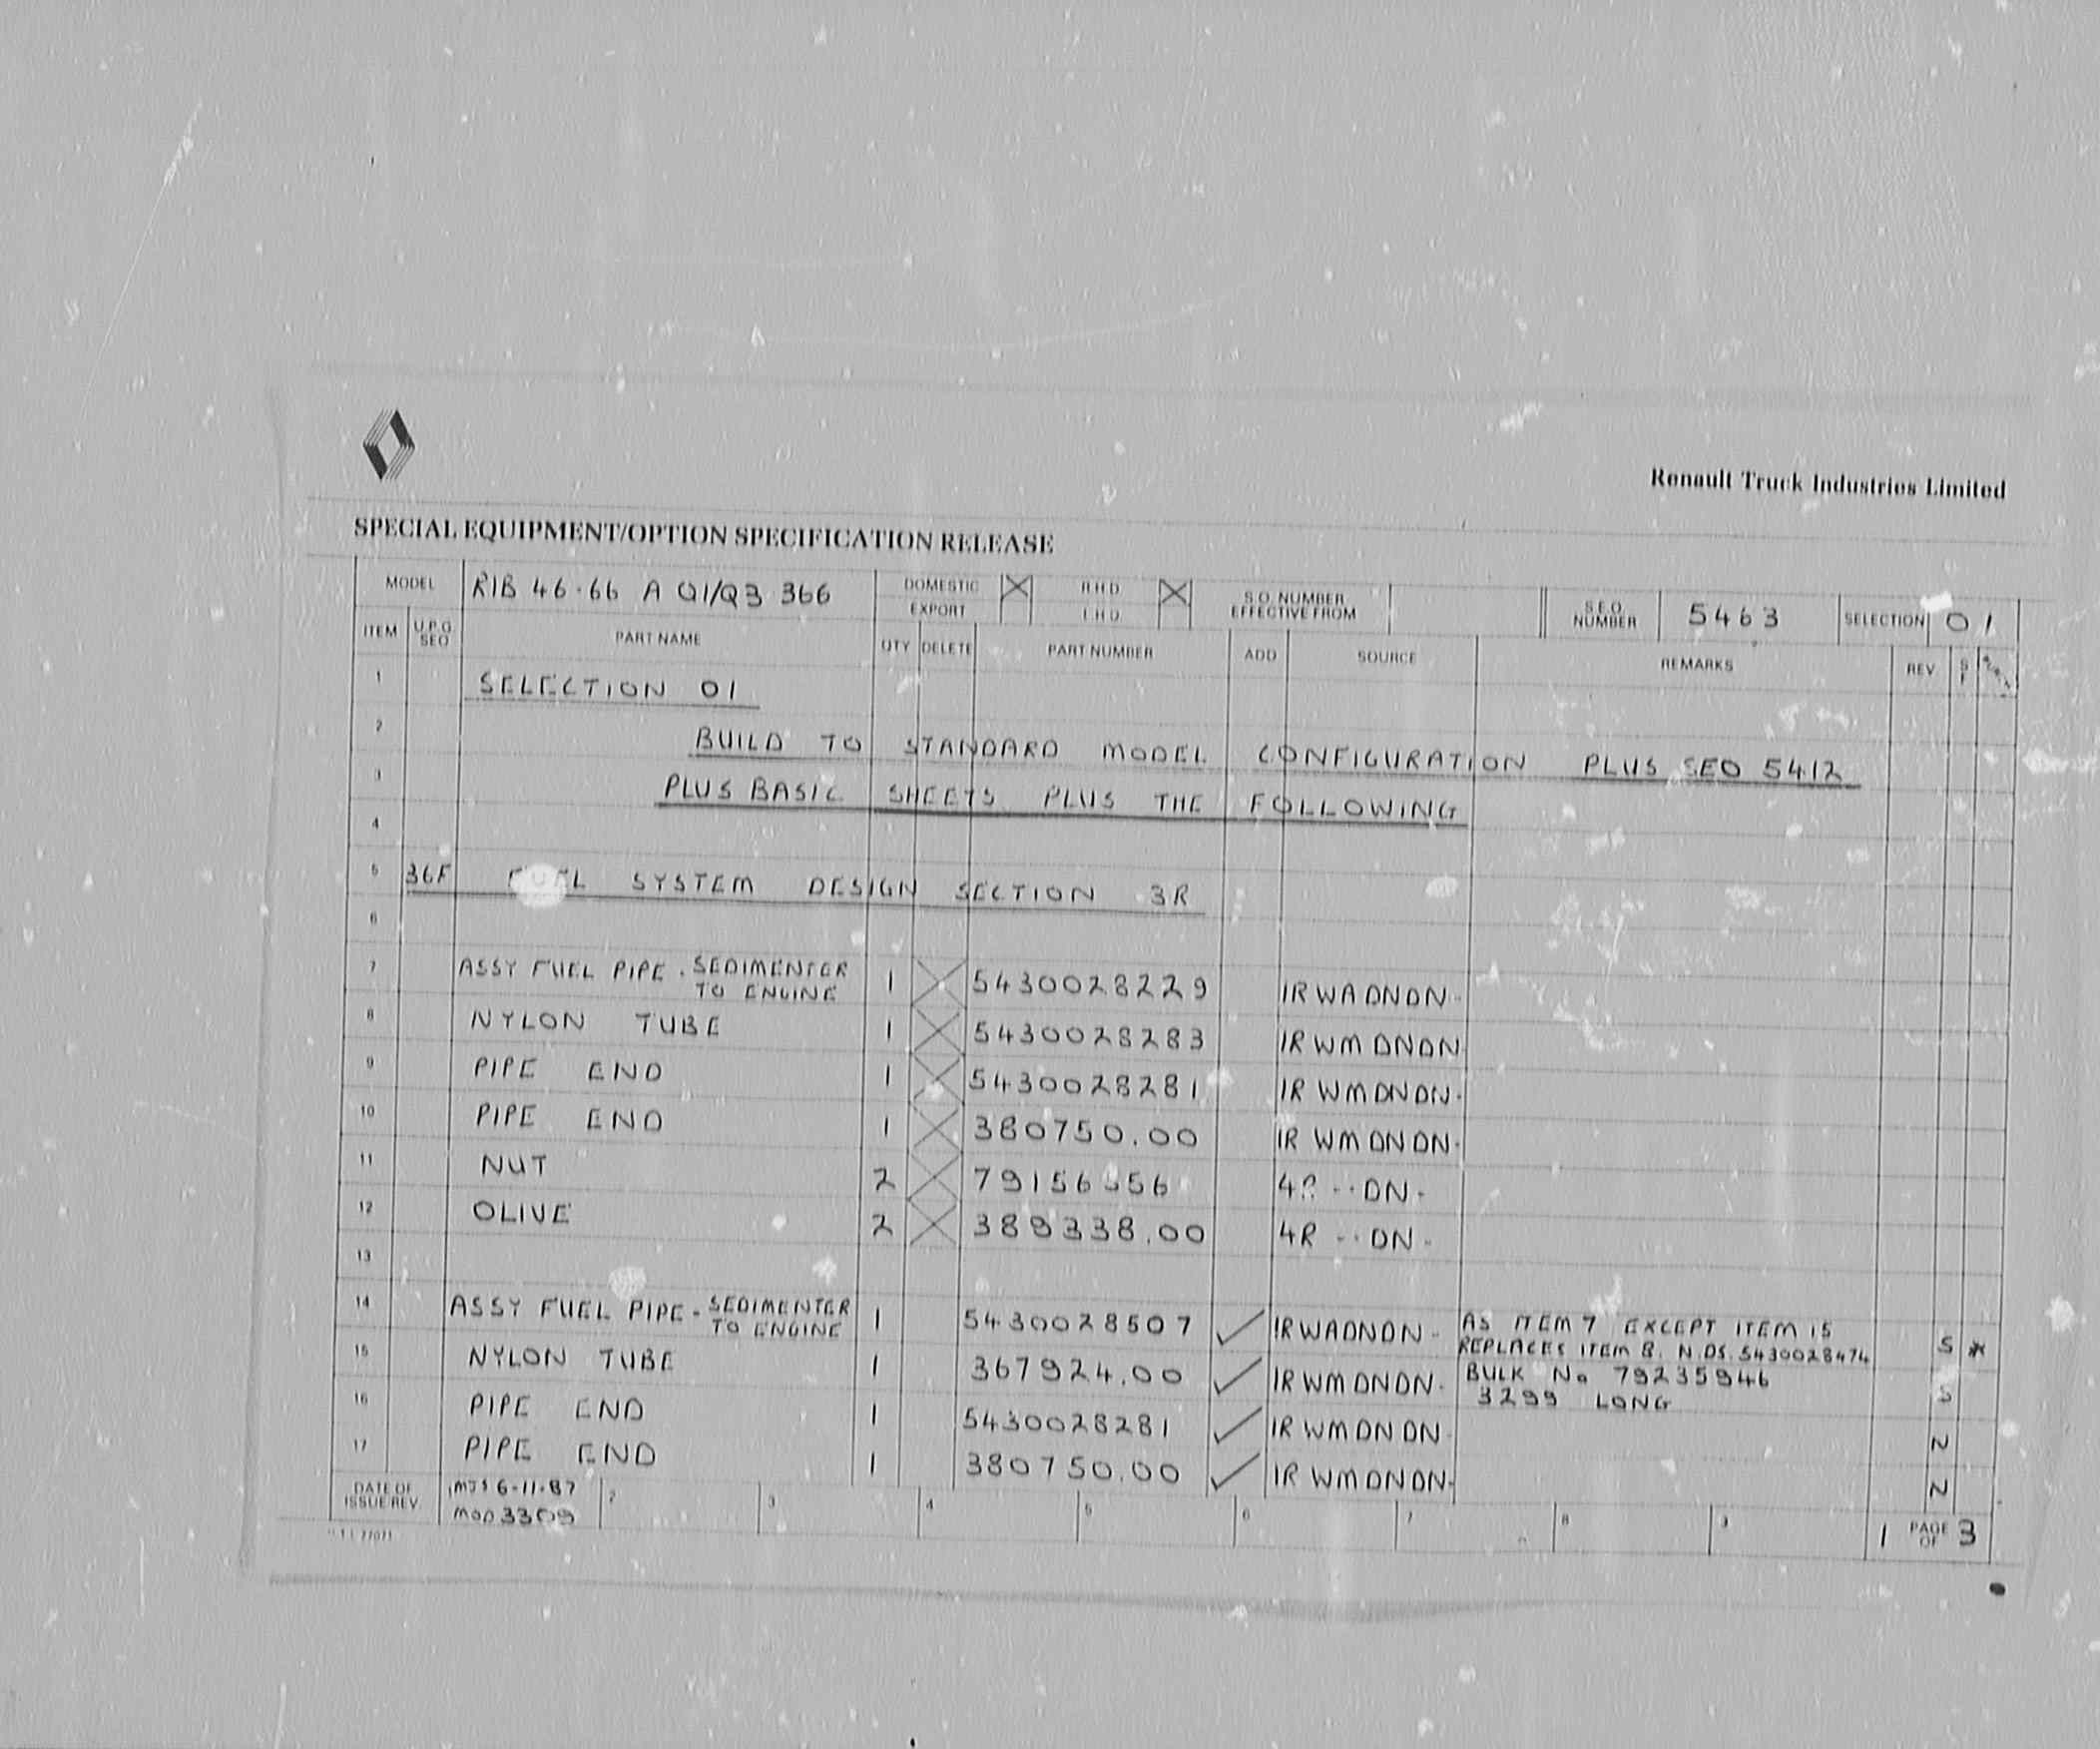 Renault Truck Industries Limited
SPECIAL EQUIPMENT/OPTION SPECIFICATION RELEASE
MODEL RIB 46·66 A Q1/Q3 366 DOMESTIC X R.H.D. X S.O. NUMBER EFFECTIVE FROM S.E.O. NUMBER 5463 SELECTION 01
EXPORT L.H.D.
ITEM U.P.G. SEO PART NAME QTY DELETE PART NUMBER ADD SOURCE REMARKS REV S F
1 SELECTION 01
2 BUILD TO STANDARD MODEL CONFIGURATION PLUS SEO 5412
3 PLUS BASIC SHEETS PLUS THE FOLLOWING
4
5 36F FUEL SYSTEM DESIGN SECTION 3R
6
7 ASSY FUEL PIPE - SEDIMENTER TO ENGINE 1 X 5430028229 IRWADNDN-
8 NYLON TUBE 1 X 5430028283 IRWMDNDN
9 PIPE END 1 X 5430028281 IRWMDNDN-
10 PIPE END 1 X 380750.00 IRWMDNDN-
11 NUT 2 X DN-
12 OLIVE 2 X 389338.00 4R --DN-
13
14 ASSY FUEL PIPE - SEDIMENTER TO ENGINE 1 5430028507 ✓ IRWADNDN- AS ITEM 7 EXCEPT ITEM 15 S *
REPLACES ITEM 8. N.DS. 5430028474
15 NYLON TUBE 1 367924.00 ✓ IRWMDNDN- BULK No 79235946 S
3299 LONG
16 PIPE END 1 5430028281 ✓ IRWMDNDN N
17 PIPE END 1 380750.00 ✓ IRWMDNDN- N
DATE OF ISSUE/REV. MJS 6-11-87 2 3 4 5 6 7 8 9 1 PAGE OF 3
MOD 3309